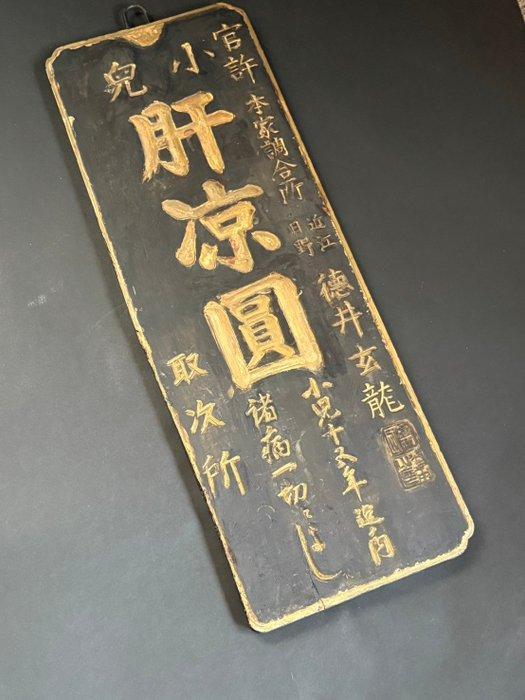 官許
本家調合所
近江
日野
德井玄龍
小兒
肝凉圓
小兒十五年迄内
諸病一切によし
取次所